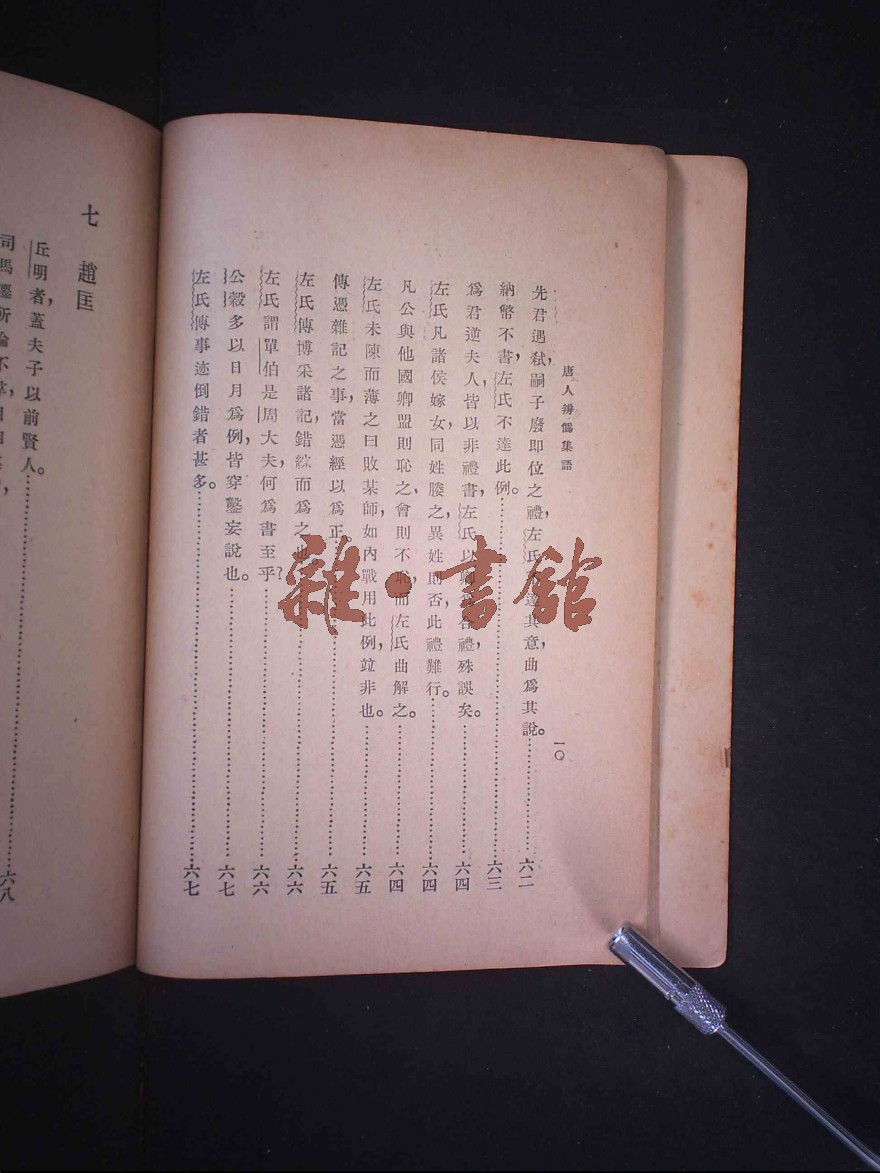 唐人辨僞集語
一〇
先君遇弑，嗣子廢即位之禮，左氏不達其意，曲爲其說。……六二
納幣不書，左氏不達此例。……六三
爲君逆夫人，皆以非禮書，左氏以卿合禮，殊誤矣。……六四
左氏凡諸侯嫁女，同姓媵之，異姓則否，此禮難行。……六四
凡公與他國卿盟則恥之，會則不恥，而左氏曲解之。……六四
左氏未陳而薄之曰敗某師，如內戰用此例，竝非也。……六五
傳憑雜記之事，當憑經以爲正。……六五
左氏傳博采諸記，錯綜而爲之也……六六
左氏謂單伯是周大夫，何爲書至乎？……六六
公穀多以日月爲例，皆穿鑿妄說也。……六七
左氏傳事迹倒錯者甚多。……六七
七 趙匡
丘明者，蓋夫子以前賢人。……
司馬遷所論不……六八
雜·書館